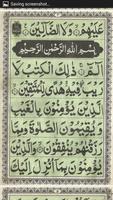 Saving screenshot...
عَلَيْهِمْ وَلَا الضَّالِّيْنَ
بِسْمِ اللّٰهِ الرَّحْمٰنِ الرَّحِيْمِ
الٓمّٓ ذٰلِكَ الْكِتٰبُ لَا
رَيْبَ فِيْهِ هُدًى لِّلْمُتَّقِيْنَ
الَّذِيْنَ يُؤْمِنُوْنَ بِالْغَيْبِ
وَيُقِيْمُوْنَ الصَّلٰوةَ وَمِمَّا
رَزَقْنٰهُمْ يُنْفِقُوْنَ وَالَّذِيْنَ
يُؤْمِنُوْنَ بِمَآ اُنْزِلَ اِلَيْكَ